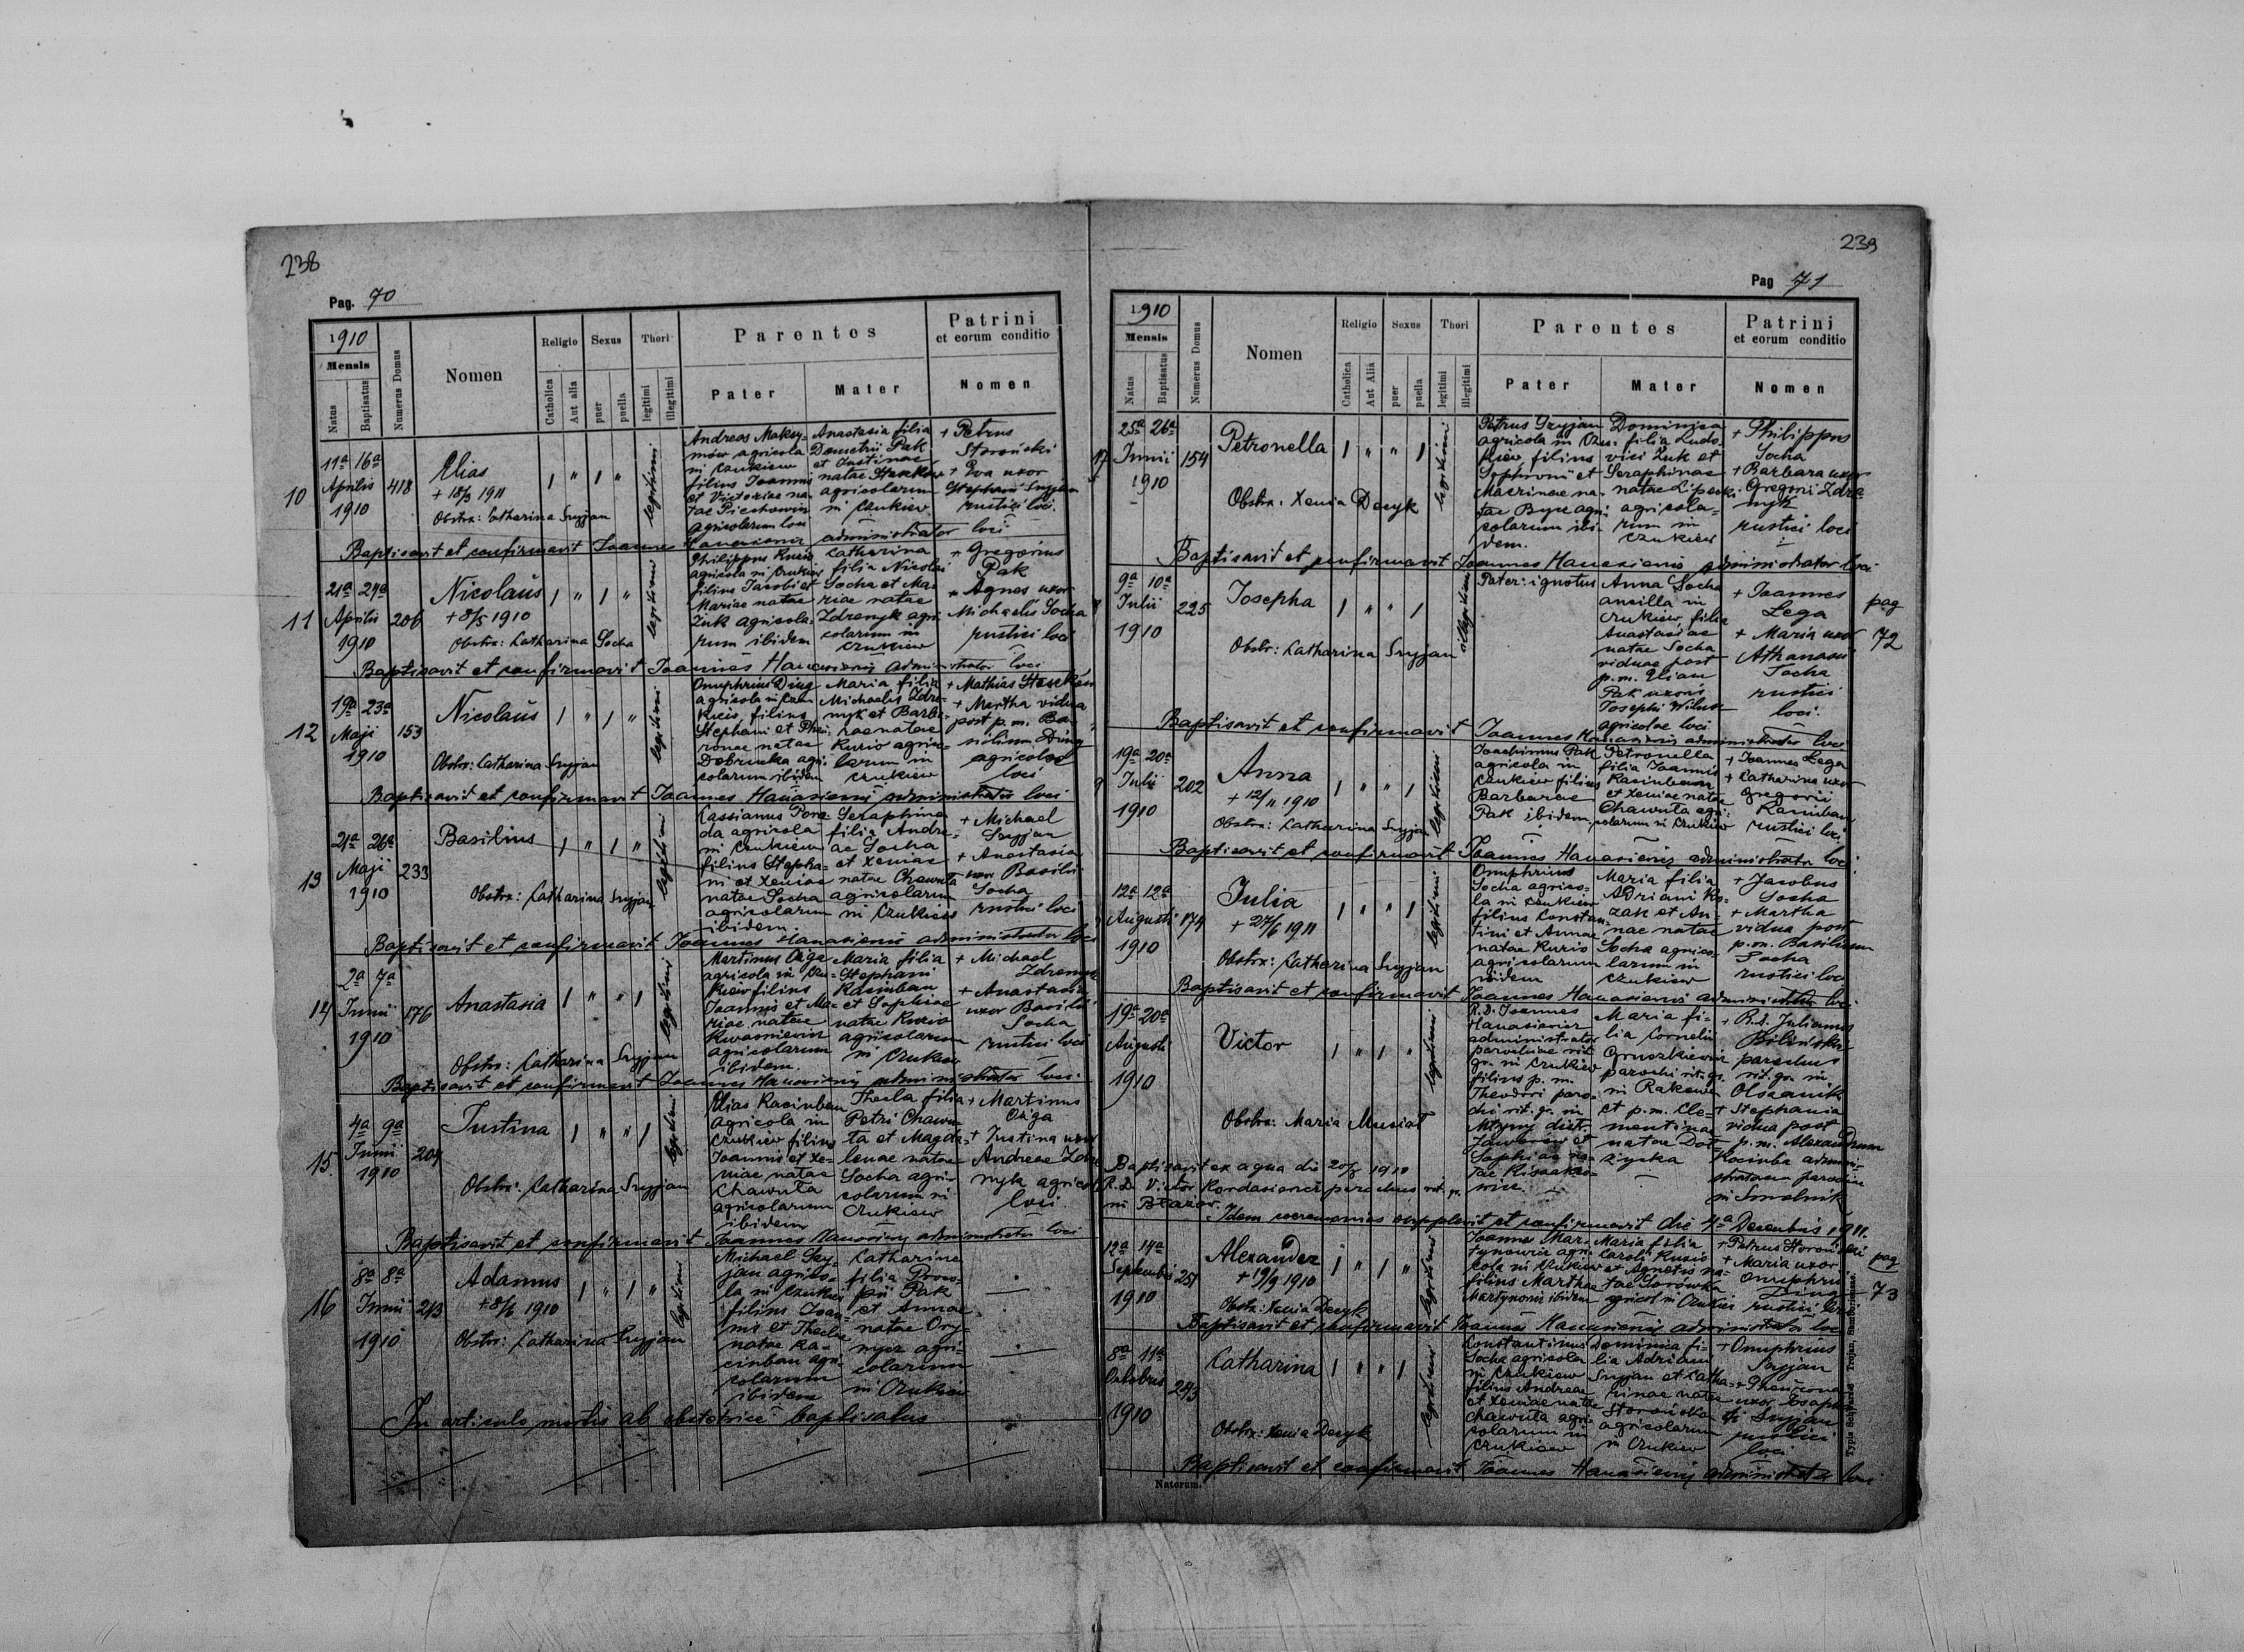 238
Pag. 70
1910
Mensis
Natus
Baptisatus
Numerus Domus
Nomen
Religio
Catholica
Aut alia
Sexus
puer
puella
Thori
legitimi
illegitimi
Parentes
Pater
Mater
Patrini
et eorum conditio
Nomen
10
11a 16a
Aprilis
1910
418
Elias
+ 18/3 1911
Obstr: Catharina Sryjan
legitimi
Andreas Maksy-
mów agricola
in Czukiew
filius Joannis
et Victoriae na-
tae Piechowicz
agricolarum loci
Anastasia filia
Demetrii Pak
et Justinae
natae
agricolarum
in Czukiew
+ Petrus
Storoński
+ Eva uxor
Stephani Sryjan
rustici loci.
Baptisavit et confirmavit Joannes Hanasiewicz administrator loci
11
21a 24a
Aprilis
1910
206
Nicolaus
+ 8/5 1910
Obstr: Catharina Socha
legitimi
Philippus Kuzio
agricola in Czukiew
filius Jacobi et
Mariae natae
Żuk agricola-
rum ibidem
Catharina
filia Nicolai
Socha et Ma-
riae natae
Zdrenyk agri-
colarum in
Czukiew
+ Gregorius
Pak
+ Agnes uxor
Michaelis Socha
rustici loci
Baptisavit et confirmavit Joannes Hanasiewicz administrator loci
12
19a 23a
Maji
1910
153
Nicolaus
Obstr: Catharina Sryjan
legitimi
Onuphrius Ding
agricola in Czu-
kiew, filius
Stephani et
ronae natae
Dobrucka agri-
colarum ibidem
Maria filia
Michaelis Zdre-
nyk et Barba-
rae natae
Kuzio agrico-
larum in
Czukiew
+ Mathias
+ Martha vidua
post p.m. Ba-
silium Ding
agricolae
loci
Baptisavit et confirmavit Joannes Hanasiewicz administrator loci
13
21a 26a
Maji
1910
233
Basilius
Obstr: Catharina Sryjan
legitimi
Cassianus Pora-
da agricola
in Czukiew
filius Stepha-
ni et Xeniae
natae Socha
agricolarum
ibidem.
Seraphina
filia Andre-
ae Socha
et Xeniae
natae Chawuta
agricolarum
in Czukiew
+ Michael
Sryjan
+ Anastasia
uxor Basilii
Socha
rustici loci
Baptisavit et confirmavit Joannes Hanasiewicz administrator loci
14
2a 7a
Junii
1910
176
Anastasia
Obstr: Catharina Sryjan
legitimi
Martinus Ożga
agricola in Czu-
kiew filius
Joannis et Ma-
riae natae
Kwasniewicz
agricolarum
ibidem.
Maria filia
Stephani
Kacinban
et Sophiae
natae Kuzio
agricolarum
in Czukiew
+ Michael
Zdrenyk
+ Anastasia
uxor Basilii
Socha
rustici loci
Baptisavit et confirmavit Joannes Hanasiewicz administrator loci
15.
4a 9a
Junii
1910
204
Justina
Obstr: Catharina Sryjan
legitimi
Elias Kacinban
agricola in
Czukiew filius
Joannis et Xe-
niae natae
Chawuta
agricolarum
ibidem
Thecla filia
Petri Chawu-
ta et Magda-
lenae natae
Socha agri-
colarum in
Czukiew
+ Martinus
Ożga
+ Justina uxor
Andreae Zdre
nyk agricola
loci.
Baptisavit et confirmavit Joannes Hanasiewicz administrator loci
16
8a 8a
Junii
1910
243
Adamus
+ 8/6 1910
Obstr: Catharina Sryjan
legitimi
Michael Sry-
jan agrico-
la in Czukiew
filius Joan-
nis et Theclae
natae Ka-
cinban agri-
colarum
ibidem
Catharina
filia Proco-
pii Pak
et Annae
natae Ory-
nycz agri-
colarum
in Czukiew
In articulo mortis ab obstetrice baptisatus
239
Pag 71
1910
Mensis
Natus
Baptisatus
Numerus Domus
Nomen
Religio
Catholica
Aut Alia
Sexus
puer
puella
Thori
legitimi
illegitimi
Parentes
Pater
Mater
Patrini
et eorum conditio
Nomen
17
25a 26a
Junii
1910
154
Petronella
Obstr: Xenia Decyk
legitimi
Petrus Sryjan
agricola in Czu-
kiew filius
Sophronii et
Macrinae na-
tae Byez agri-
colarum ibi-
dem.
Dominica
filia Ludo-
vici Żuk et
Seraphinae
natae Lipecka
agricola-
rum in
Czukiew
+ Philippus
Socha
+ Barbara uxor
Gregorii Zdre
nyk
rustici loci
Baptisavit et confirmavit Joannes Hanasiewicz administrator loci
9a 10a
Julii
1910
225
Josepha
Obstr: Catharina Sryjan
illegitimi
Pater: ignotus
Anna Socha
ancilla in
Czukiew, filia
Anastasiae
natae Socha
viduae post
p.m. Eliam
Pak uxoris
Josephi
agricolae loci
+ Joannes
Lega
+ Maria uxor
Athanasii
Socha
rustici
loci.
pag
72
Baptisavit et confirmavit Joannes Hanasiewicz administrator loci
9
19a 20a
Julii
1910
202
Anna
+ 12/11 1910
Obstr: Catharina Sryjan
legitimi
Joachimus Pak
agricola in
Czukiew filius
Barbarae
Pak ibidem
Petronella
filia Joannis
Kacinban
et Xeniae natae
Chawuta agri-
colarum in Czukiew
+ Joannes Lega
+ Catharina uxor
Gregorii
Kacinban
rustici loci
Baptisavit et confirmavit Joannes Hanasiewicz administrator loci
12a 12a
Augusti
1910
174
Julia
+ 27/6 1911
Obstr: Catharina Sryjan
legitimi
Onuphrius
Socha agrico-
la in Czukiew
filius Constan-
tini et Annae
natae Kuzio
agricolarum
ibidem
Maria filia
Adriani Ko-
zak et An-
nae natae
Socha agrico-
larum in
Czukiew
+ Jacobus
Socha
+ Martha
vidua post
p.m. Basilium
Socha
rustici loci
Baptisavit et confirmavit Joannes Hanasiewicz administrator loci
19a 20a
Augusti
1910
Victor
Obstr: Maria Musiat
legitimi
R.D. Joannes
Hanasiewicz
administrator
parochiae rit.
gr. in Czukiew
filius p.m.
Theodori paro-
chi rit. gr. in
Mtyny distr.
Jaworów et
Sophiae na-
tae
Maria fi-
lia Cornelii
Gruszkiewicz
parochi rit. gr.
in Rakowa
et p.m. Cle-
mentinae
natae Dot-
życka
+ R.D. Julianus
Biliński
parochus
rit. gr. in
Olszanik
+ Stephania
vidua post
p.m. Alexandrum
Kocinba admini-
stratorem parochiae
in Smolnik
Baptisavit ex aqua die 20/8 1910
R.D. Victor Kordasiewicz parochus rit. gr.
in Błażów. Idem ceremonias supplevit et confirmavit die 4a Decembris 1911.
12a 14a
Septembris
1910
251
Alexander
+ 19/9 1910
Obstr: Xenia Decyk
legitimi
Joannes Mar-
tynowicz agri-
cola in Czukiew
filius Marthae
Martynowicz ibidem
Maria filia
Caroli Kuzio
et Agnetis na-
tae Sorówka
agricol. in Czukiew
+ Petrus Storoński
+ Maria uxor
Onuphrii
Ding
rustici loci
pag
73
Baptisavit et confirmavit Joannes Hanasiewicz administrator loci
8a 11a
Octobris
1910
243
Catharina
Obstr: Xenia Decyk
legitimi
Constantinus
Socha agricola
in Czukiew
filius Andreae
et Xeniae natae
Chawuta agri-
colarum in
Czukiew
Dominica fi-
lia Adriani
Sryjan et Catha-
rinae natae
Storońska
agricolarum
in Czukiew
+ Onuphrius
Sryjan
uxor Josaphat
Sryjan
rustici
loci
Baptisavit et confirmavit Joannes Hanasiewicz administrator loci
Natorum.